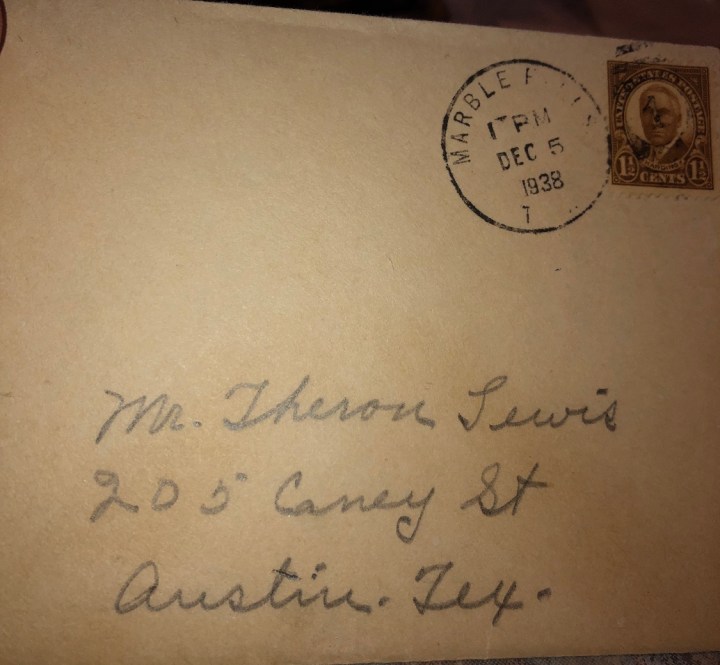 MARBLE
PM
DEC 5
1938
T
UNITED STATES POSTAGE
1½ CENTS 1½
Mr. Theron Lewis
205 Caney St
Austin. Tex.